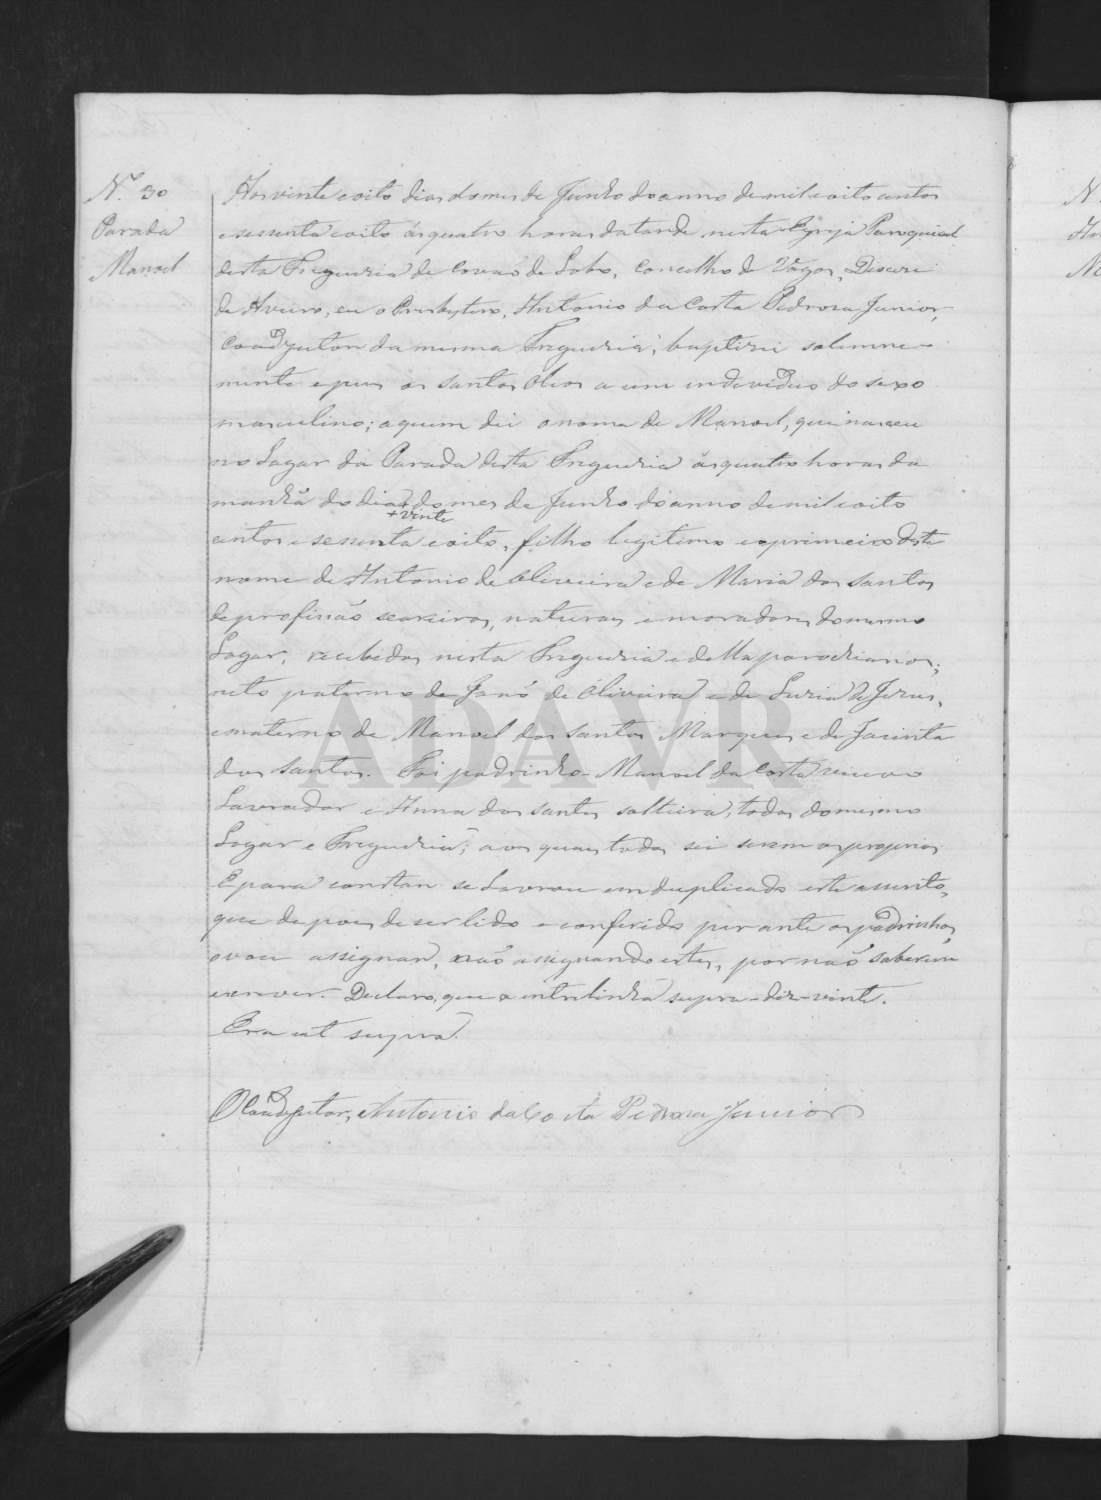 N.º 30
Parada
Manoel
Aos vinte e oito dias do mes de Junho do anno de mil e oito centos
e sessenta e oito ás quatro horas da tarde nesta Egreja Paroquial
desta Freguezia de Covaõ de Lobo, Concelho de Vagos, Diocese
de Aveiro, eu o Presbytero, Antonio da Costa Pedrosa Junior,
Coadjutor da mesma Freguezia, baptizei solemne-
mente e pus os santos oleos a um individuo do sexo
masculino; a quem dei o nome de Manoel, que nasceu
no Lugar da Parada desta Freguezia ás quatro horas da
manhã do dia do mes de Junho do anno de mil e oito
+ vinte
centos e sessenta e oito, filho legitimo e o primeiro deste
nome de Antonio de Oliveira e de Maria dos Santos
de profissão seareiros, naturaes e moradores do mesmo
Lugar, recebidos nesta Freguezia e della parochianos;
neto paterno de José de Oliveira e de Luzia de Jesus,
e materno de Manoel dos Santos Marques e de Jacinta
dos Santos. Foi padrinho Manoel da Costa
Lavrador e Anna dos Santos solteira, todos do mesmo
Lugar e Freguezia; a os quaes todos sei serem os proprios
E para constar se Lavrou em duplicado este assento,
que depois de ser lido e conferido perante os padrinhos
vou assignar, não assignando estes, por não saberem
escrever. Declaro, que a entrelinha supra-diz-vinte.
Era ut supra.
O Coadjutor, Antonio da Costa Pedrosa Junior
ADAVR